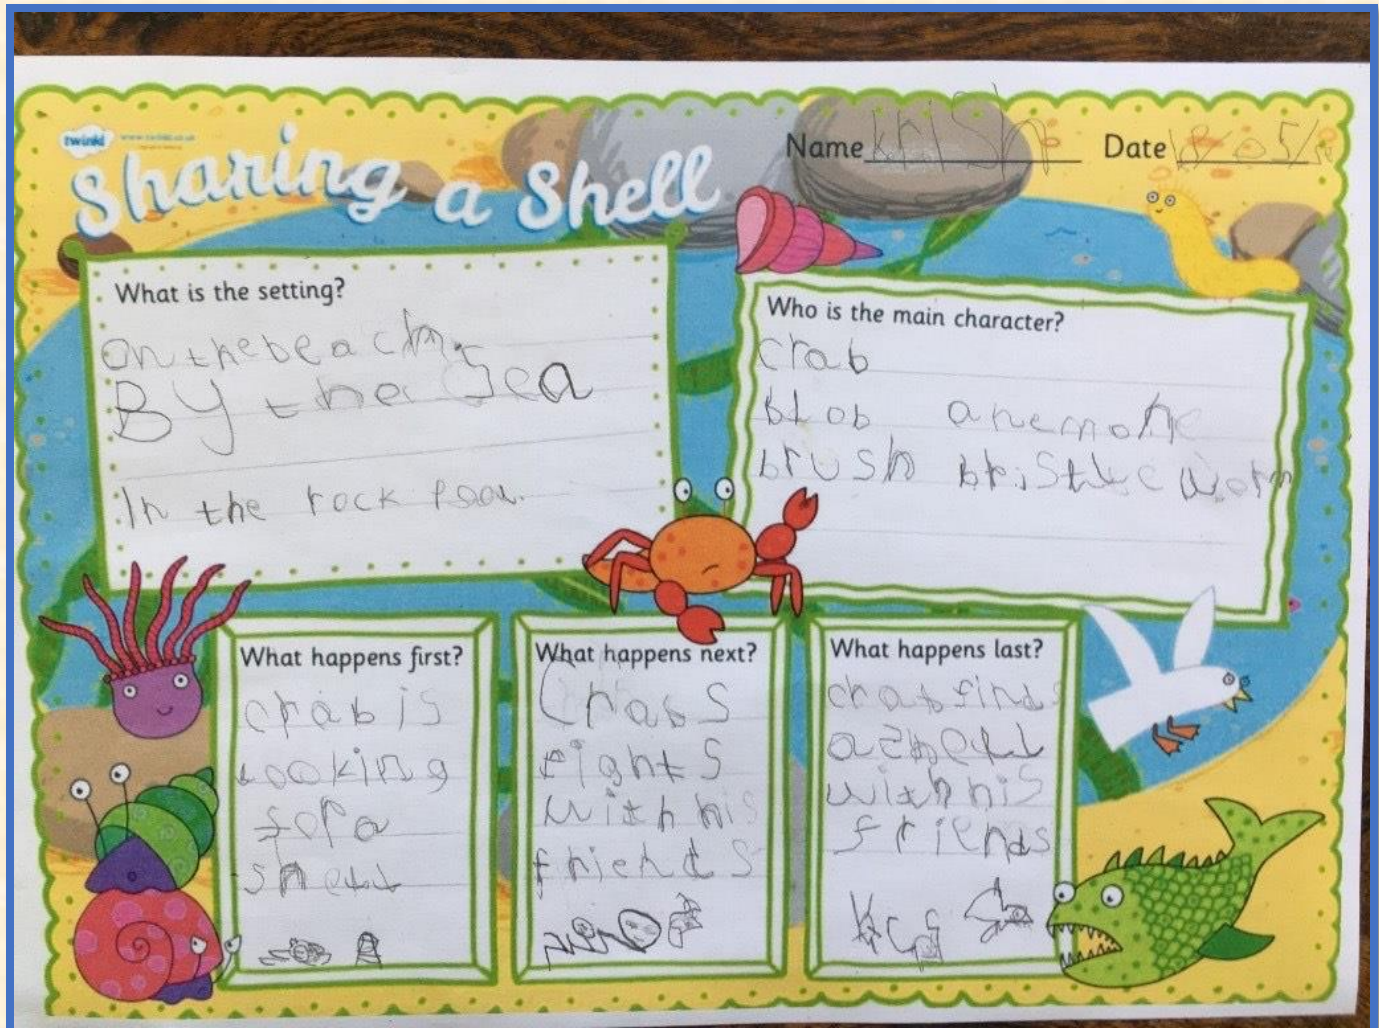 twinkl
www.twinkl.co.uk
Sharing a Shell
Name krish Date 18/05/
What is the setting?
on the beach.
By the Sea
In the rock pool.
Who is the main character?
crab
blob anemone
brush bristle worm
What happens first?
crab is
looking
for a
shell
What happens next?
Crabs
fights
with his
friends
What happens last?
crab finds
a shell
with his
friends